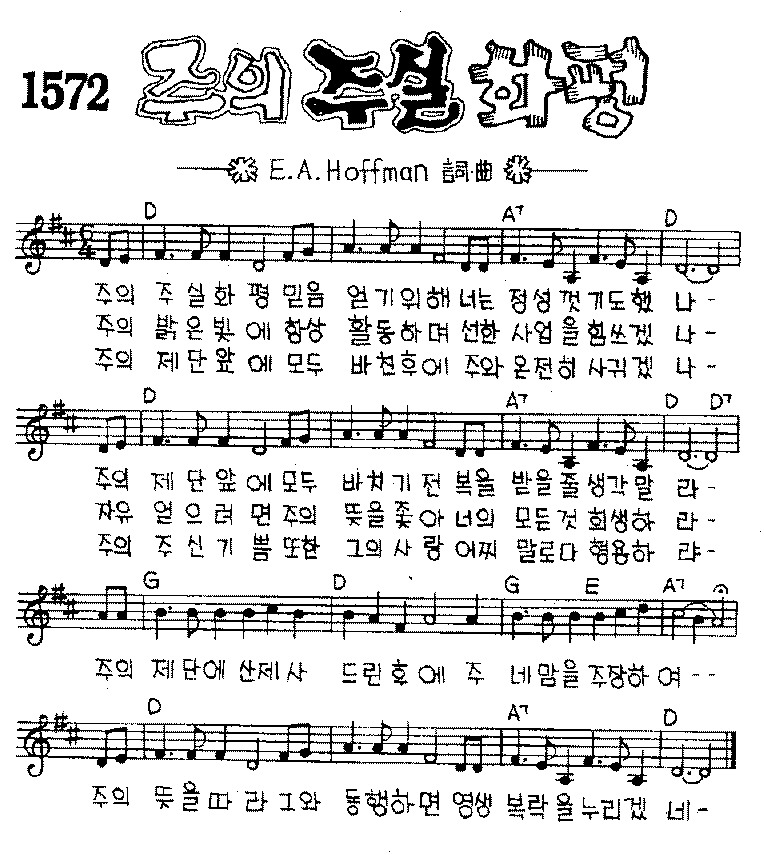 1572 주의 주실 화평
E.A.Hoffman 詞·曲
D A7 D
주의 주 실 화 평 믿음 얻기위해너는 정성껏기도했 나-
주의 밝은빛에 항상 활동하며 선한 사업을힘쓰겠 나-
주의 제단앞에 모두 바친후에 주와 온전히 사귀겠 나-
D A7 D D7
주의 제 단 앞에모두 바치기 전 복을 받을 줄생각말 라-
자유 얻으려면주의 뜻을좇아 너의 모든것 희생하 라-
주의 주신기쁨또한 그의사랑어찌 말로다 형용하 랴-
G D G E A7
주의 제단에 산제사 드린후에 주 네맘을주장하여--
D A7 D
주의 뜻을따라그와 동행하면 영생 복락을누리겠 네-